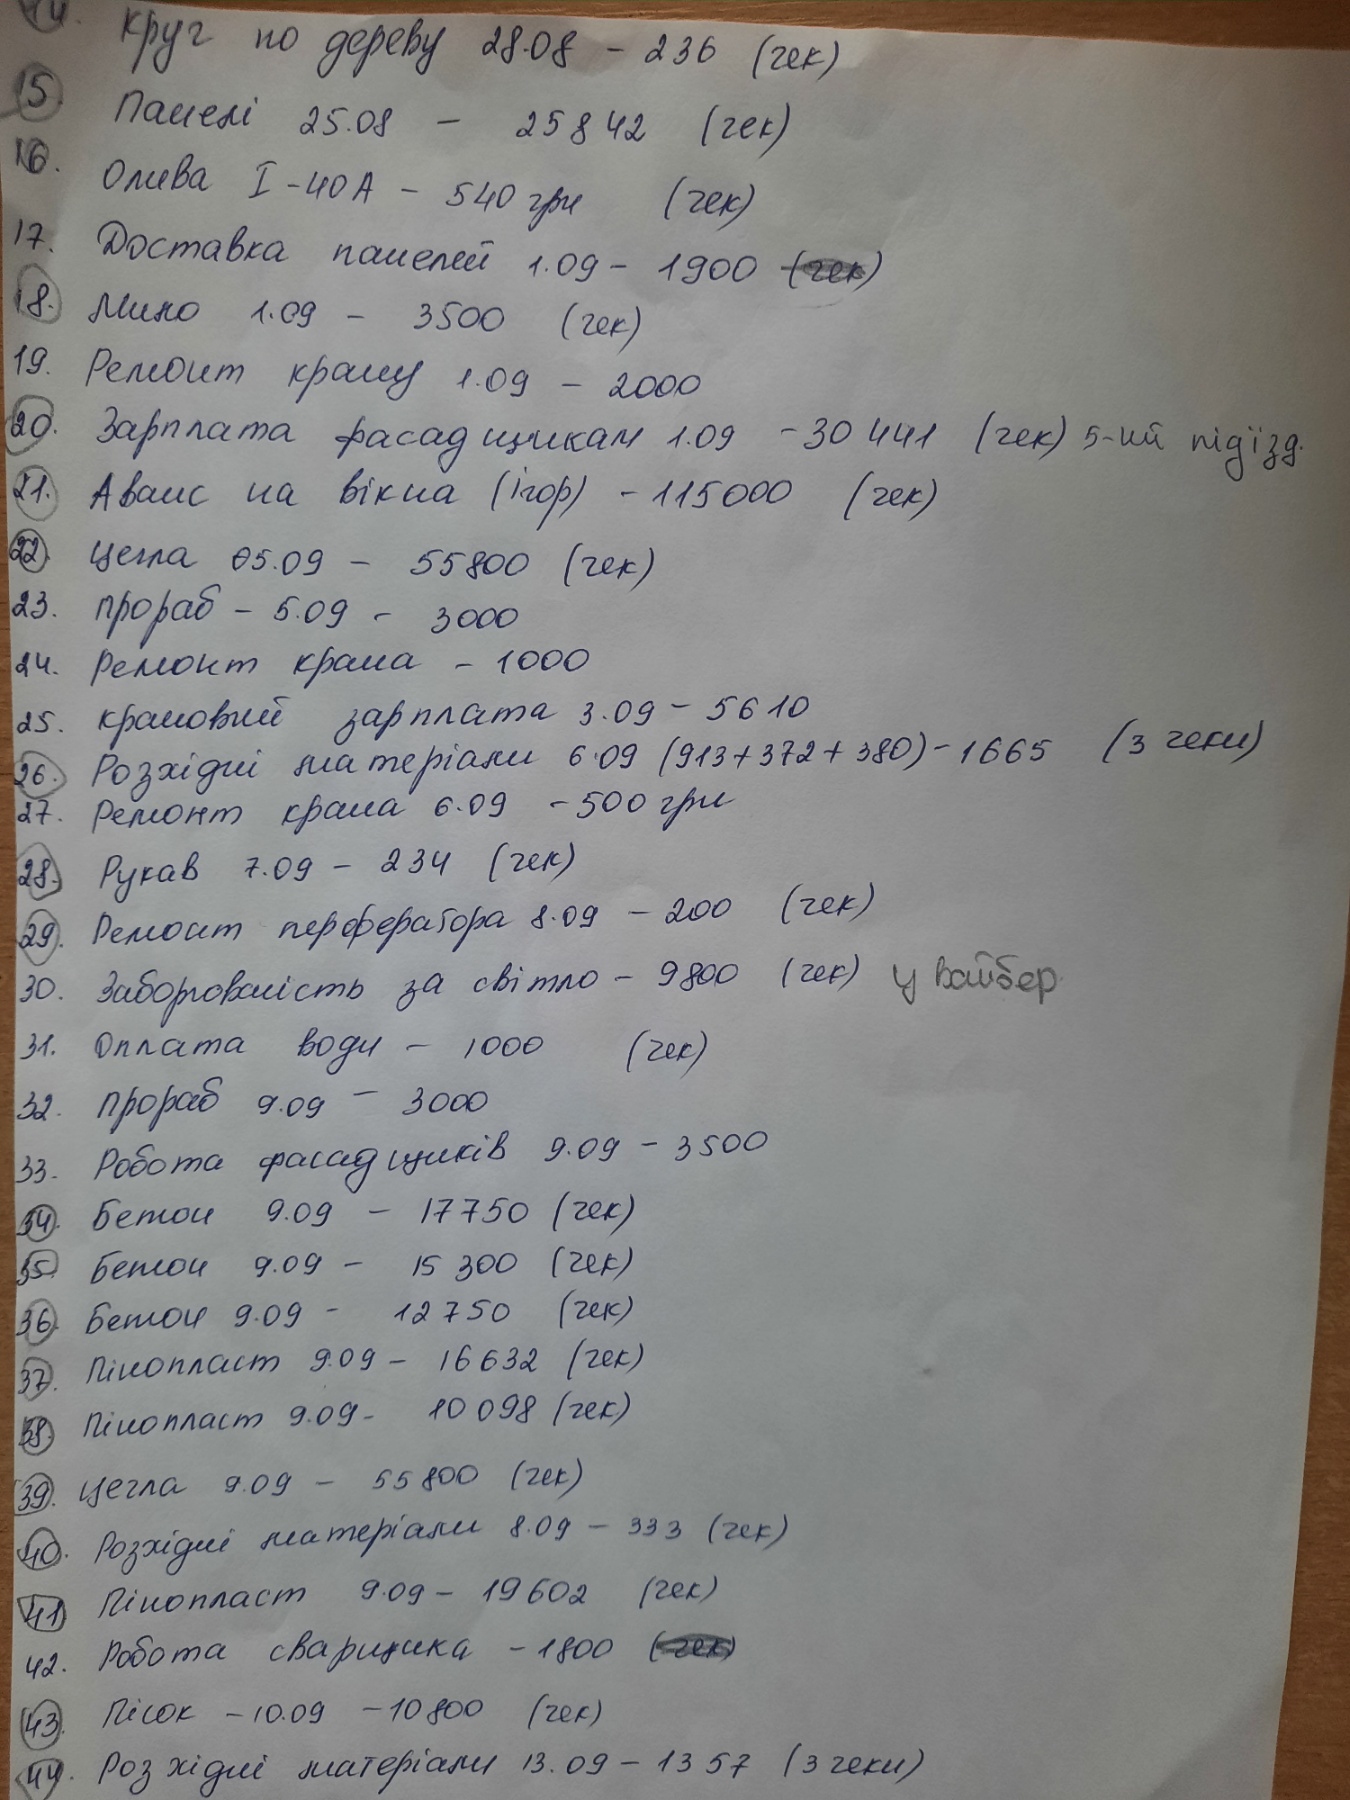 14. Круг по дереву 28.08 - 236 (чек)
15. Панелі 25.08 - 25842 (чек)
16. Олива І-40А - 540 грн (чек)
17. Доставка панелей 1.09 - 1900 (чек)
18. Мило 1.09 - 3500 (чек)
19. Ремонт крану 1.09 - 2000
20. Зарплата фасадщикам 1.09 - 30441 (чек) 5-ий під'їзд.
21. Аванс на вікна (Ігор) - 115000 (чек)
22. Цегла 05.09 - 55800 (чек)
23. Прораб - 5.09 - 3000
24. Ремонт крана - 1000
25. Крановий зарплата 3.09 - 5610
26. Розхідні матеріали 6.09 (913+372+380) - 1665 (3 чеки)
27. Ремонт крана 6.09 - 500 грн
28. Рукав 7.09 - 234 (чек)
29. Ремонт перфератора 8.09 - 200 (чек)
30. Заборгованість за світло - 9800 (чек) у вайбер
31. Оплата води - 1000 (чек)
32. Прораб 9.09 - 3000
33. Робота фасадщиків 9.09 - 3500
34. Бетон 9.09 - 17750 (чек)
35. Бетон 9.09 - 15300 (чек)
36. Бетон 9.09 - 12750 (чек)
37. Пінопласт 9.09 - 16632 (чек)
38. Пінопласт 9.09 - 10098 (чек)
39. Цегла 9.09 - 55800 (чек)
40. Розхідні матеріали 8.09 - 333 (чек)
41. Пінопласт 9.09 - 19602 (чек)
42. Робота сварщика - 1800 (чек)
43. Пісок - 10.09 - 10800 (чек)
44. Розхідні матеріали 13.09 - 1357 (3 чеки)